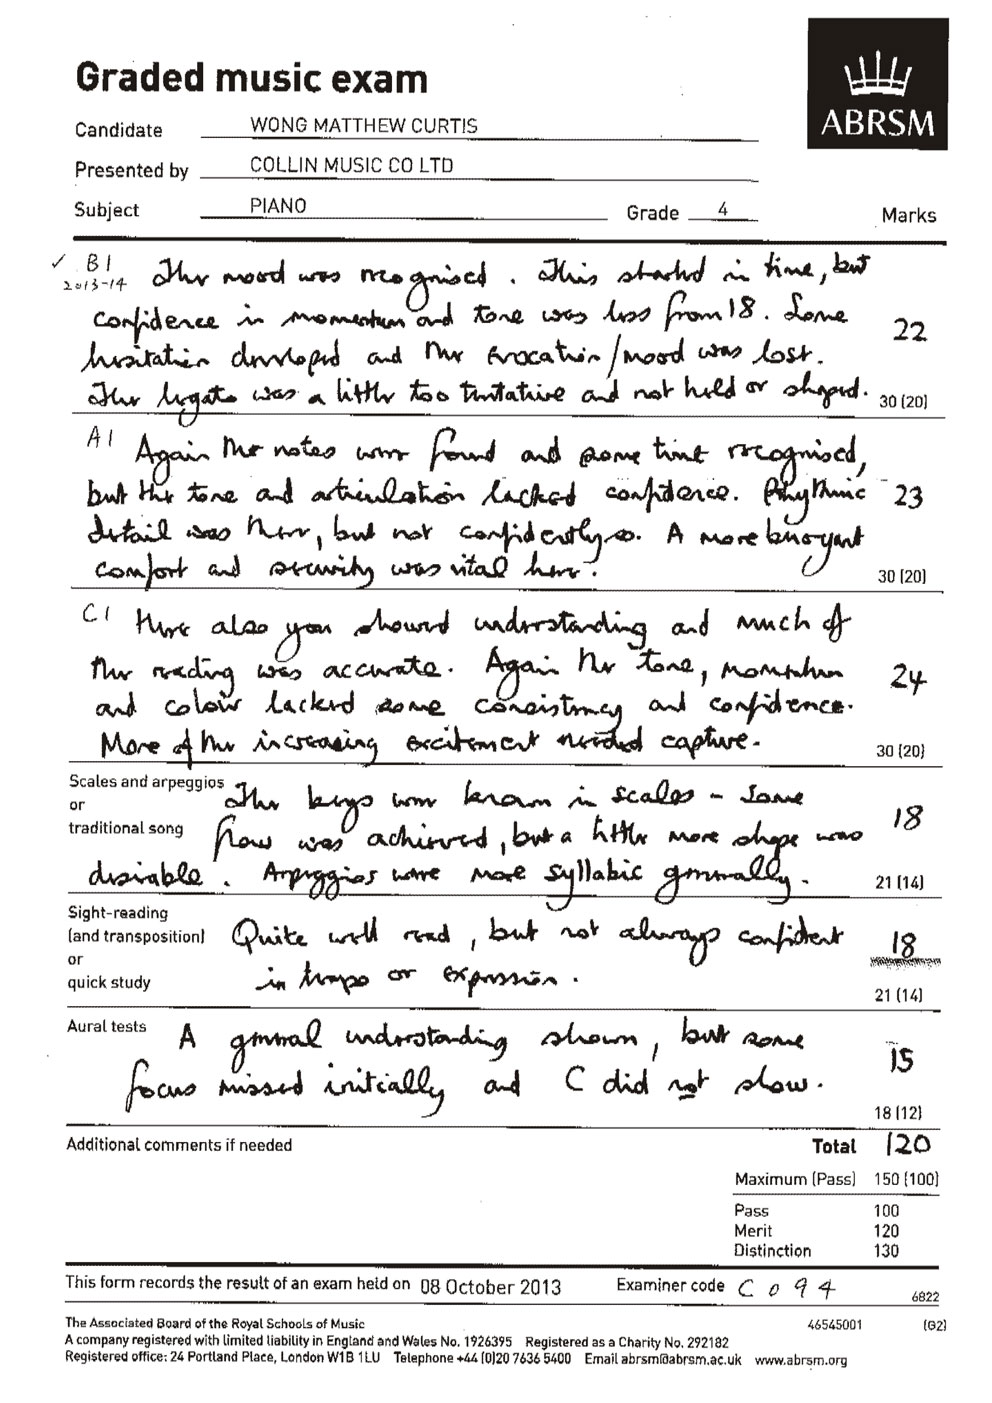 Graded music exam
ABRSM
Candidate WONG MATTHEW CURTIS
Presented by COLLIN MUSIC CO LTD
Subject PIANO Grade 4 Marks
✓ B1 The mood was recognised. This started in time, but
2013-14
confidence in momentum and tone was less from 18. Some 22
hesitation developed and the evocation/mood was lost.
The legato was a little too tentative and not held or shaped. 30 (20)
A1 Again the notes were found and some time recognised,
but the tone and articulation lacked confidence. Rhythmic 23
detail was there, but not confidently so. A more buoyant
comfort and security was vital here. 30 (20)
C1 Here also you showed understanding and much of
the reading was accurate. Again the tone, momentum 24
and colour lacked some consistency and confidence.
More of the increasing excitement needed capture. 30 (20)
Scales and arpeggios The keys were known in scales - some
or
traditional song flow was achieved, but a little more shape was 18
desirable. Arpeggios were more syllabic generally. 21 (14)
Sight-reading
(and transposition) Quite well read, but not always confident 18
or
quick study in tempo or expression. 21 (14)
Aural tests A general understanding shown, but some
focus missed initially and C did not slow. 15
18 (12)
Additional comments if needed Total 120
Maximum (Pass) 150 (100)
Pass 100
Merit 120
Distinction 130
This form records the result of an exam held on 08 October 2013 Examiner code C094 6822
The Associated Board of the Royal Schools of Music 46545001 (G2)
A company registered with limited liability in England and Wales No. 1926395 Registered as a Charity No. 292182
Registered office: 24 Portland Place, London W1B 1LU Telephone +44 (0)20 7636 5400 Email abrsm@abrsm.ac.uk www.abrsm.org